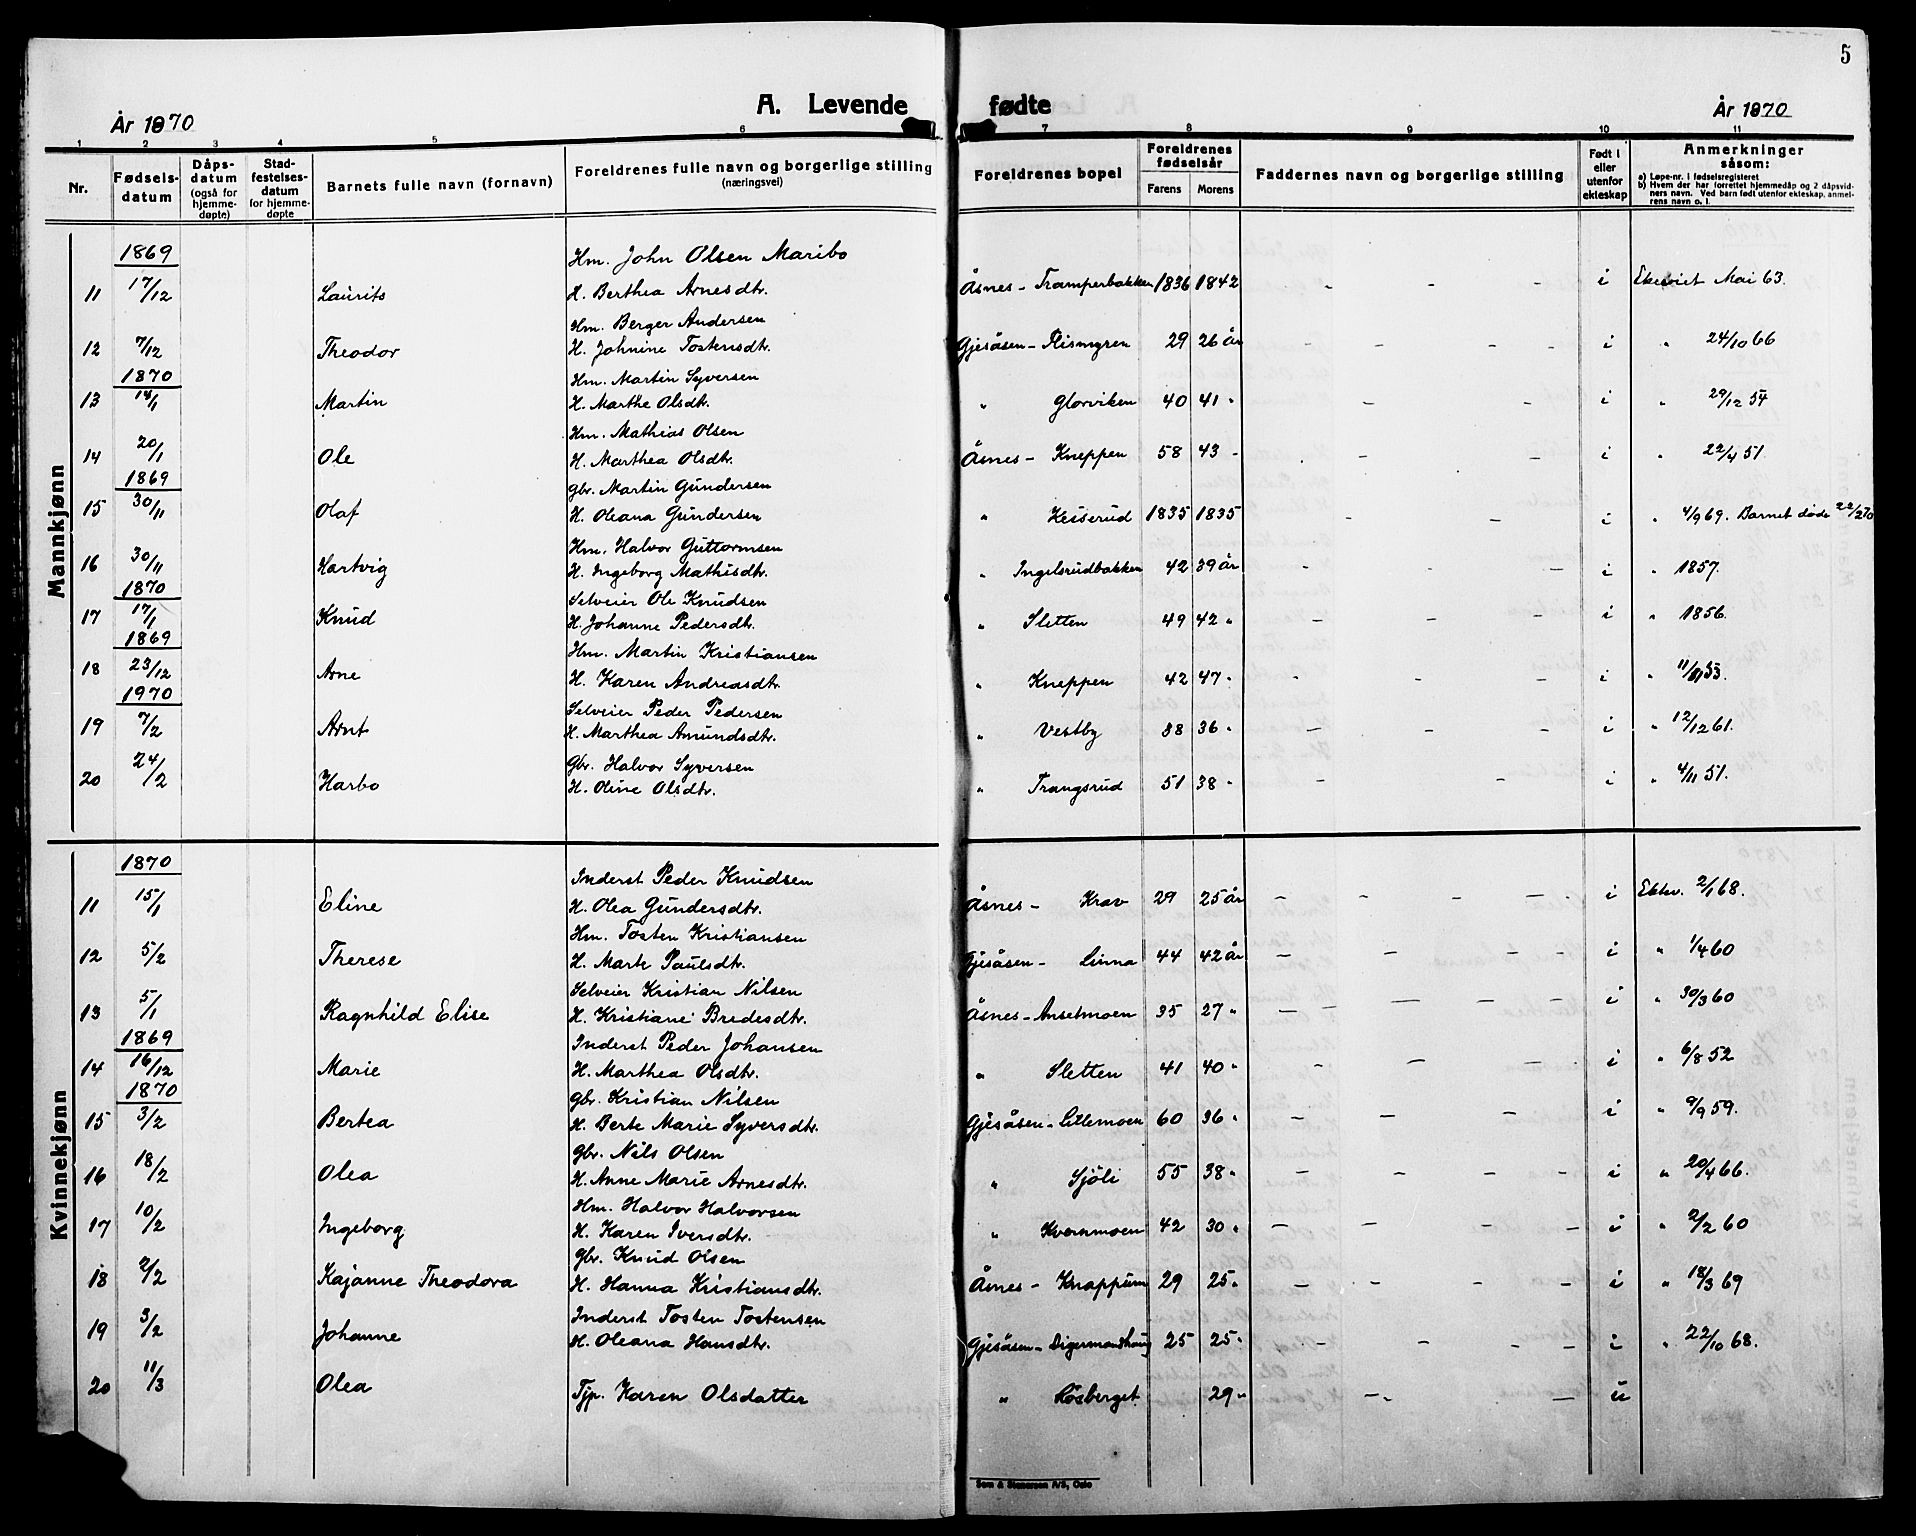 5
A. Levende fødte
År 1870
År 1870
1 2 3 4 5 6 7 8 9 10 11
Nr.
Fødselsdatum
Dåpsdatum (også for hjemmedøpte)
Stadfestelsesdatum for hjemmedøpte
Barnets fulle navn (fornavn)
Foreldrenes fulle navn og borgerlige stilling (næringsvei)
Foreldrenes bopel
Foreldrenes fødselsår
Farens Morens
Faddernes navn og borgerlige stilling
Født i eller utenfor ekteskap
Anmerkninger såsom:
a) Løpe-nr. i fødselsregisteret
b) Hvem der har forrettet hjemmedåp og 2 dåpsvidners navn. Ved barn født utenfor ekteskap, anmelrens navn o. l.
Mannkjønn
1869
Hm. John Olsen Maribo
11 17/12 Laurits H. Berthea Arnesdtr. Åsnes - Tramperbakken 1836 1842 - - - i Ekteviet Mai 63.
Hm. Berger Andersen
12 7/12 Theodor H. Johnine Tostensdtr. Gjesåsen - Rismyren 29 26 år - - - i " 24/10 66
1870
Hm. Martin Syversen
13 14/1 Martin H. Marthe Olsdtr. " Glorviken 40 41 " - - i " 29/12 54
Hm. Mathias Olsen
14 20/1 Ole H. Marthea Olsdtr. Åsnes - Kneppen 58 43 - - - i " 22/4 51
1869
Gbr. Martin Gundersen
15 30/11 Olaf H. Oleana Gundersen " Kesserud 1835 1835 - - i " 4/9 69. Barnet døde 22/2 70
Hm. Halvor Guttormsen
16 30/11 Hartvig H. Ingeborg Mathisdtr. " Ingelsrudbakken 42 39 år - - - i " 1857.
1870
Selveier Ole Knudsen
17 17/1 Knud H. Johanne Pedersdtr. " Sletten 49 42 " - - - i " 1856.
1869
Hm. Martin Kristiansen
18 23/12 Arne H. Karen Andreasdtr. " Kneppen 42 47 " - - - i "
1970
Selveier Peder Pedersen
19 7/2 Arnt H. Marthea Amundsdtr. " Vestby 38 36 " - - - i " 12/12 61.
Gbr. Halvor Syversen
20 24/2 Harbo H. Oline Olsdtr. " Trangsrud 51 38 " - - i " 4/11 51.
Kvinnekjønn
1870
Inderst Peder Knudsen
11 15/1 Eline H. Olea Gundersdtr. Åsnes - Krav 29 25 år - - - - i Ektev. 2/1 68.
Hm. Tosten Kristiansen
12 5/2 Therese H. Marte Paulsdtr. Gjesåsen - Linna 44 42 år - - - - i " 1/4 60
Selveier Kristian Nilsen
13 5/1 Ragnhild Elise H. Kristiane Bredesdtr. Åsnes - Anselmoen 35 27 " - - - - - i " 30/3 60
1869
Inderst Peder Johansen
14 16/12 Marie H. Marthea Olsdtr. " Sletten 41 40 " - - - i " 6/8 52
1870
Gbr. Kristian Nilsen
15 3/2 Bertea H. Berte Marie Syversdtr. Gjesåsen - Lillemoen 60 36 " - - - - i " 9/9 59.
Gbr. Nils Olsen
16 18/2 Olea H. Anne Marie Arnesdtr. " Sjöli 55 38 " - - - - i " 20/4 66.
Hm. Halvor Halvorsen
17 10/2 Ingeborg H. Karen Iversdtr. " Kvernmoen 42 30 " - - - - - i " 2/2 60
Gbr. Knud Olsen
18 2/2 Kajanne Theodora H. Hanna Kristiansdtr. Åsnes - Knappum 29 25 " - - - - i " 18/3 69
Inderst Tosten Tostensen
19 3/2 Johanne H. Oleana Hansdtr. Gjesåsen - Digermoshaug 25 25 " - - - - i " 22/10 68.
20 11/3 Olea Tjp. Karen Olsdatter " Røsberget 29 " - - - u
Sem & Stenersen A/S, Oslo